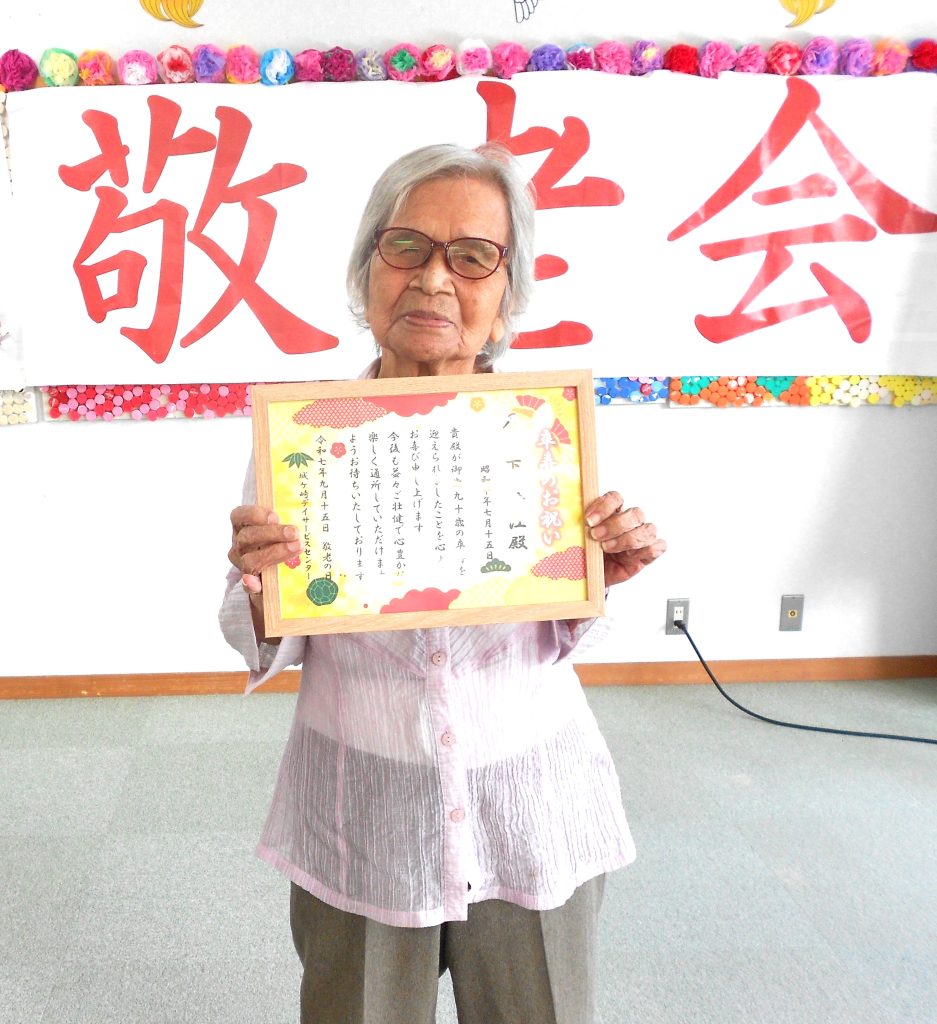 敬老会
卒寿のお祝い
下 江殿
昭和 年七月十五日
貴殿が御 九十歳の卒 を
迎えられ したことを心
お喜び申し上げます
今後も益々ご壮健で心豊か
楽しく通所していただけま
ようお待ちいたしております
令和七年九月十五日 敬老の日
城ケ崎デイサービスセンター